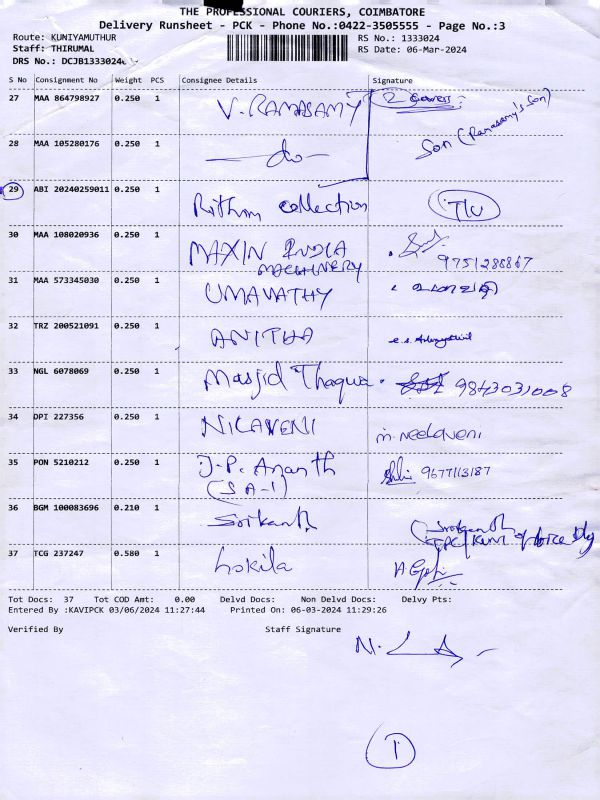 THE PROFESSIONAL COURIERS, COIMBATORE
Delivery Runsheet - PCK - Phone No.:0422-3505555 - Page No.:3
Route: KUNIYAMUTHUR RS No.: 1333024
Staff: THIRUMAL RS Date: 06-Mar-2024
DRS No.: DCJB1333024
S No Consignment No Weight PCS Consignee Details Signature
27 MAA 864798927 0.250 1 V. RAMASAMY 2 covers
28 MAA 105280176 0.250 1 - do - Son (Ramasamy's Son)
29 ABI 20240259011 0.250 1 Rithm collection
30 MAA 108020936 0.250 1 MAXIN INDIA
MACHINERY 9751286867
31 MAA 573345030 0.250 1 UMAVATHY
32 TRZ 200521091 0.250 1 ANITHA
33 NGL 6078069 0.250 1 Masjid Thaqua 9843031008
34 DPI 227356 0.250 1 NILAVENI m. neelaveni
35 PON 5210212 0.250 1 J.P. Ananth 9677113187
(S A-1)
36 BGM 100083696 0.210 1 Srikanth
37 TCG 237247 0.580 1 Lokila
Tot Docs: 37 Tot COD Amt: 0.00 Delvd Docs: Non Delvd Docs: Delvy Pts:
Entered By :KAVIPCK 03/06/2024 11:27:44 Printed On: 06-03-2024 11:29:26
Verified By Staff Signature
1